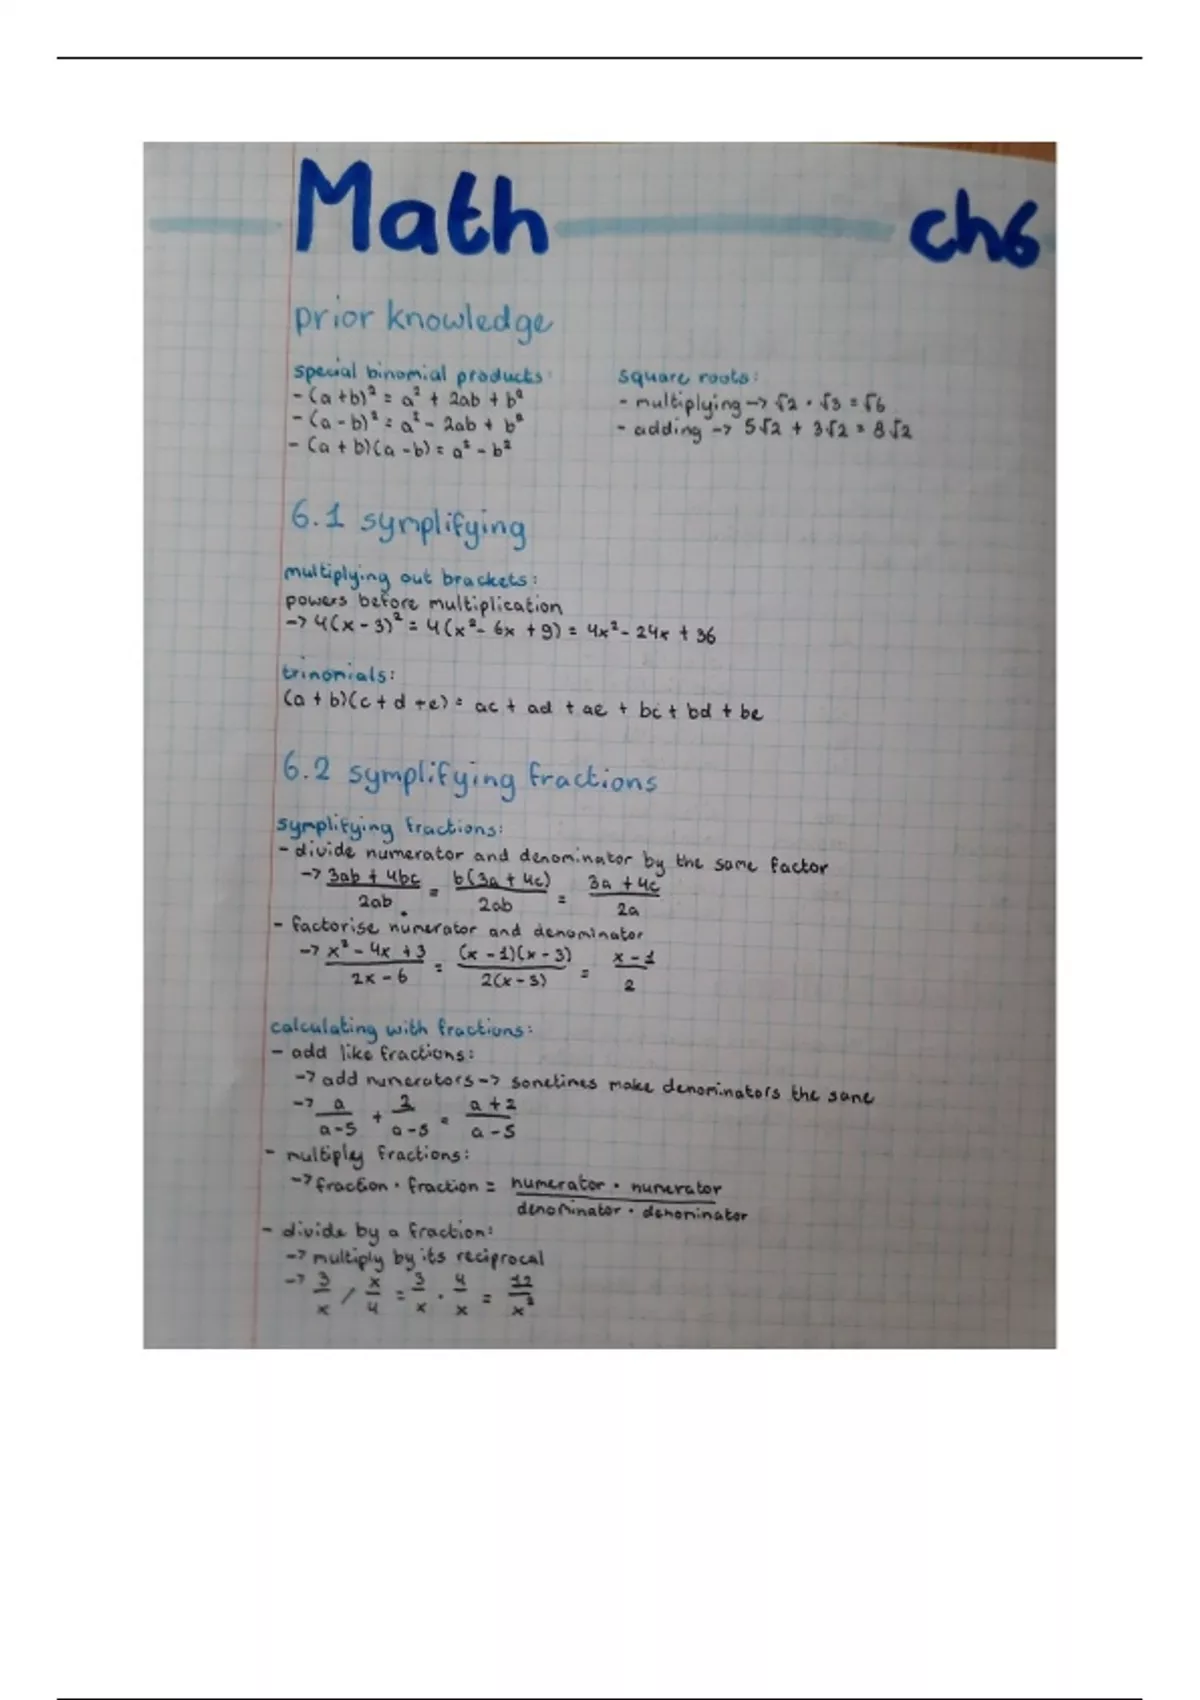 Math ch6
prior knowledge
special binomial products:
- (a + b)² = a² + 2ab + b²
- (a - b)² = a² - 2ab + b²
- (a + b)(a - b) = a² - b²
square roots:
- multiplying → √2 · √3 = √6
- adding → 5√2 + 3√2 = 8√2
6.1 symplifying
multiplying out brackets:
powers before multiplication
→ 4(x - 3)² = 4(x² - 6x + 9) = 4x² - 24x + 36
trinomials:
(a + b)(c + d + e) = ac + ad + ae + bc + bd + be
6.2 symplifying fractions
symplifying fractions:
- divide numerator and denominator by the same factor
→ 3ab + 4bc / 2ab = b(3a + 4c) / 2ab = 3a + 4c / 2a
- factorise numerator and denominator
→ x² - 4x + 3 / 2x - 6 = (x - 1)(x - 3) / 2(x - 3) = x - 1 / 2
calculating with fractions:
- add like fractions:
→ add numerators → sometimes make denominators the same
→ a / a - 5 + 2 / a - 5 = a + 2 / a - 5
- multiply fractions:
→ fraction · fraction = numerator · numerator / denominator · denominator
- divide by a fraction:
→ multiply by its reciprocal
→ 3/x / x/4 = 3/x · 4/x = 12/x²